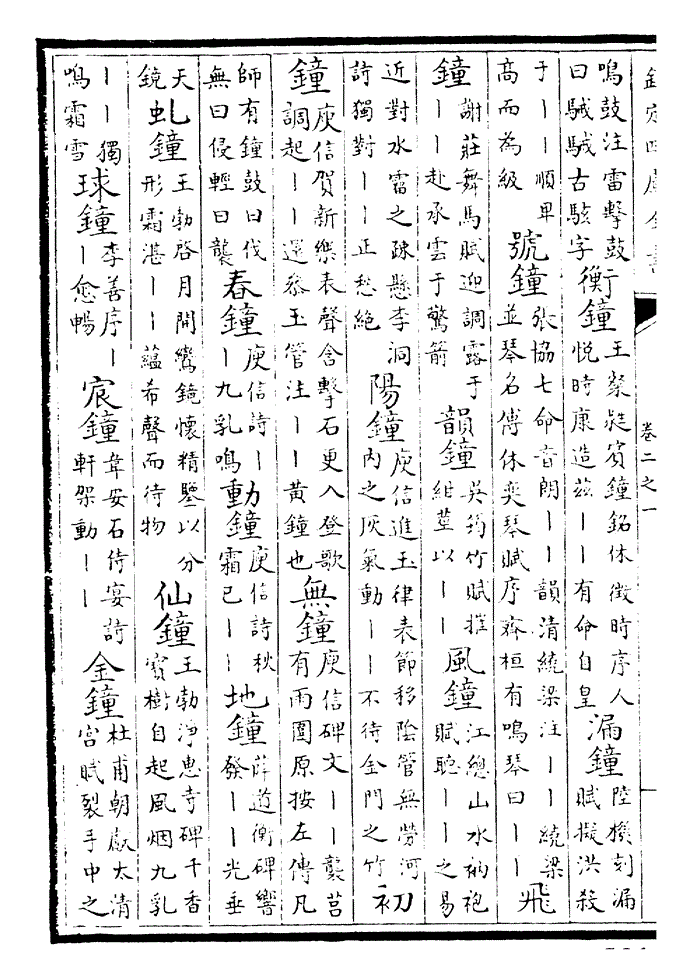 欽定四庫全書 卷二之一
鳴鼓注雷擊鼓曰駴駴古駭字衡鐘王粲蕤賓鐘銘休徵時序人悅時康造茲丨丨有命自皇漏鐘陸機刻漏賦擬洪殺
于丨丨順卑高而為級號鐘張協七命音朗丨丨韻清繞梁注丨丨繞梁並琴名傅休奕琴賦序齊桓有鳴琴曰丨丨飛
鐘謝莊舞馬賦迎調露于丨丨赴承雲于驚箭韻鐘吳筠竹賦摧紺莖以丨丨風鐘江總山水衲袍賦聽丨丨之易
近對水雷之踈懸李洞詩獨對丨丨正愁絶陽鐘庾信進玉律表節移陰管無勞河内之灰氣動丨丨不待金門之竹初
鐘庾信賀新樂表聲含擊石更入登歌調起丨丨還叅玉管注丨丨黃鐘也無鐘庾信碑文丨丨襲莒有雨圍原按左傳凡
師有鐘鼓曰伐無曰侵輕曰襲春鐘庾信詩丨丨九乳鳴動鐘庾信詩秋霜已丨丨地鐘薛道衡碑響發丨丨光垂
天鏡虬鐘王勃啓月開鸞鏡懷精鑒以分形霜湛丨丨蘊希聲而待物仙鐘王勃淨惠寺碑千香寶樹自起風烟九乳
丨丨獨鳴霜雪球鐘李善序丨丨愈暢宸鐘韋安石侍宴詩軒架動丨丨金鐘杜甫朝獻太清宮賦裂手中之